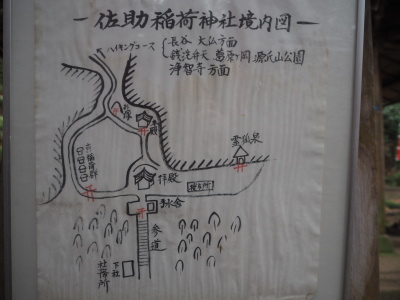 佐助稲荷神社境内図
ハイキングコース
長谷 大仏方面
銭洗弁天 葛原ヶ岡 源氏山公園
浄智寺方面
本殿
霊狐泉
拝殿
授与所
手水舎
参道
下社
社務所